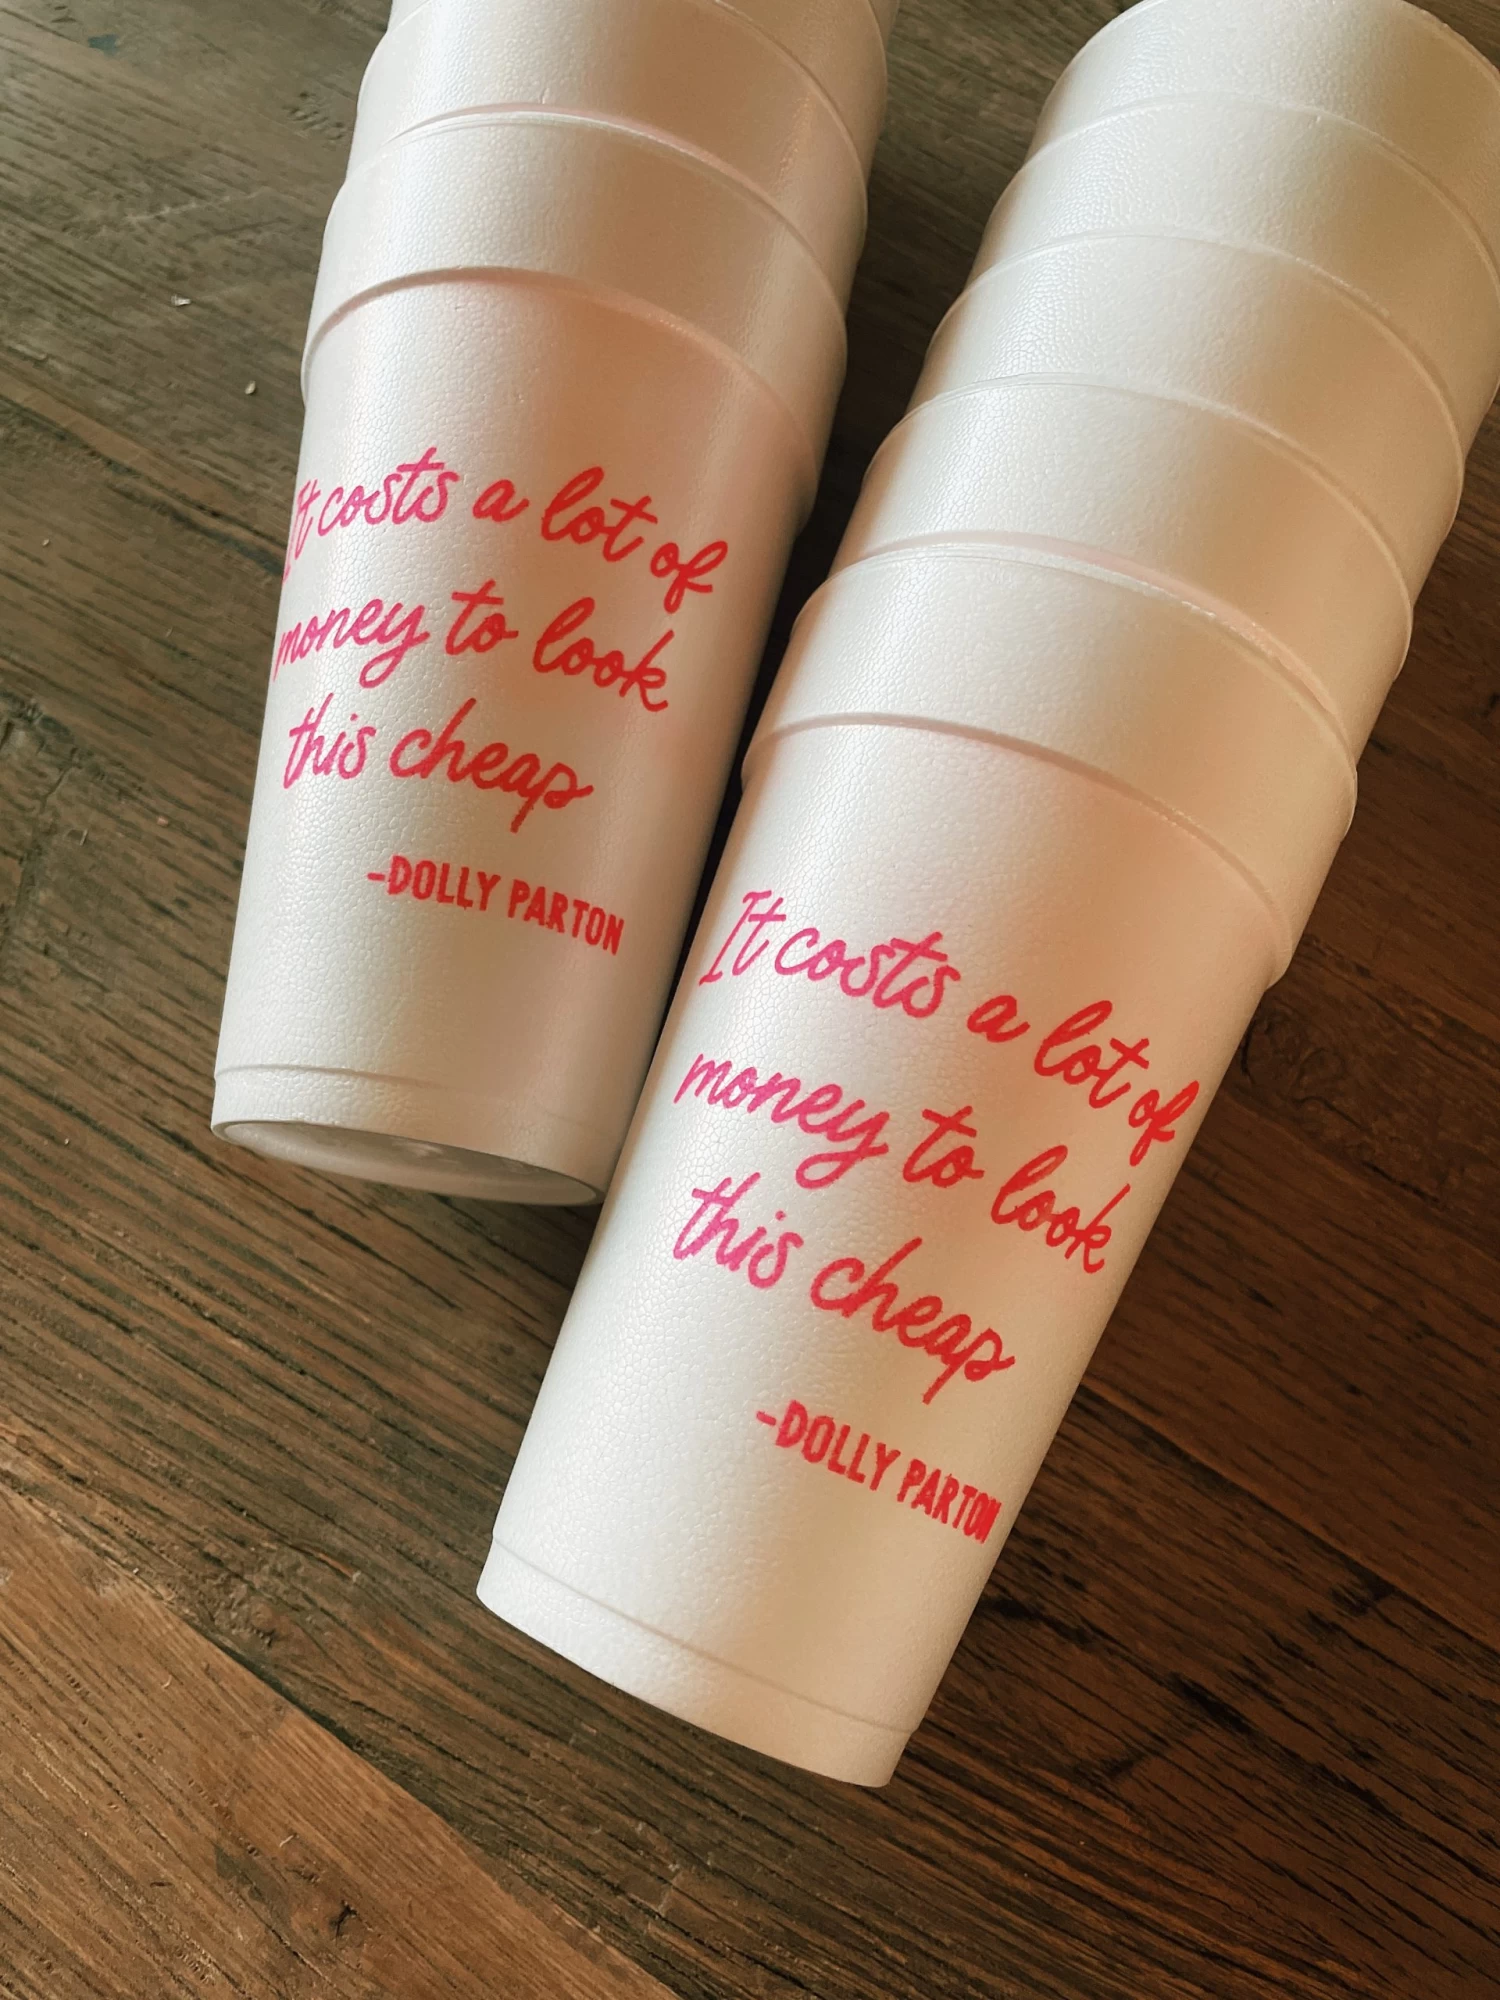 It costs a lot of
money to look
this cheap
-DOLLY PARTON
It costs a lot of
money to look
this cheap
-DOLLY PARTON